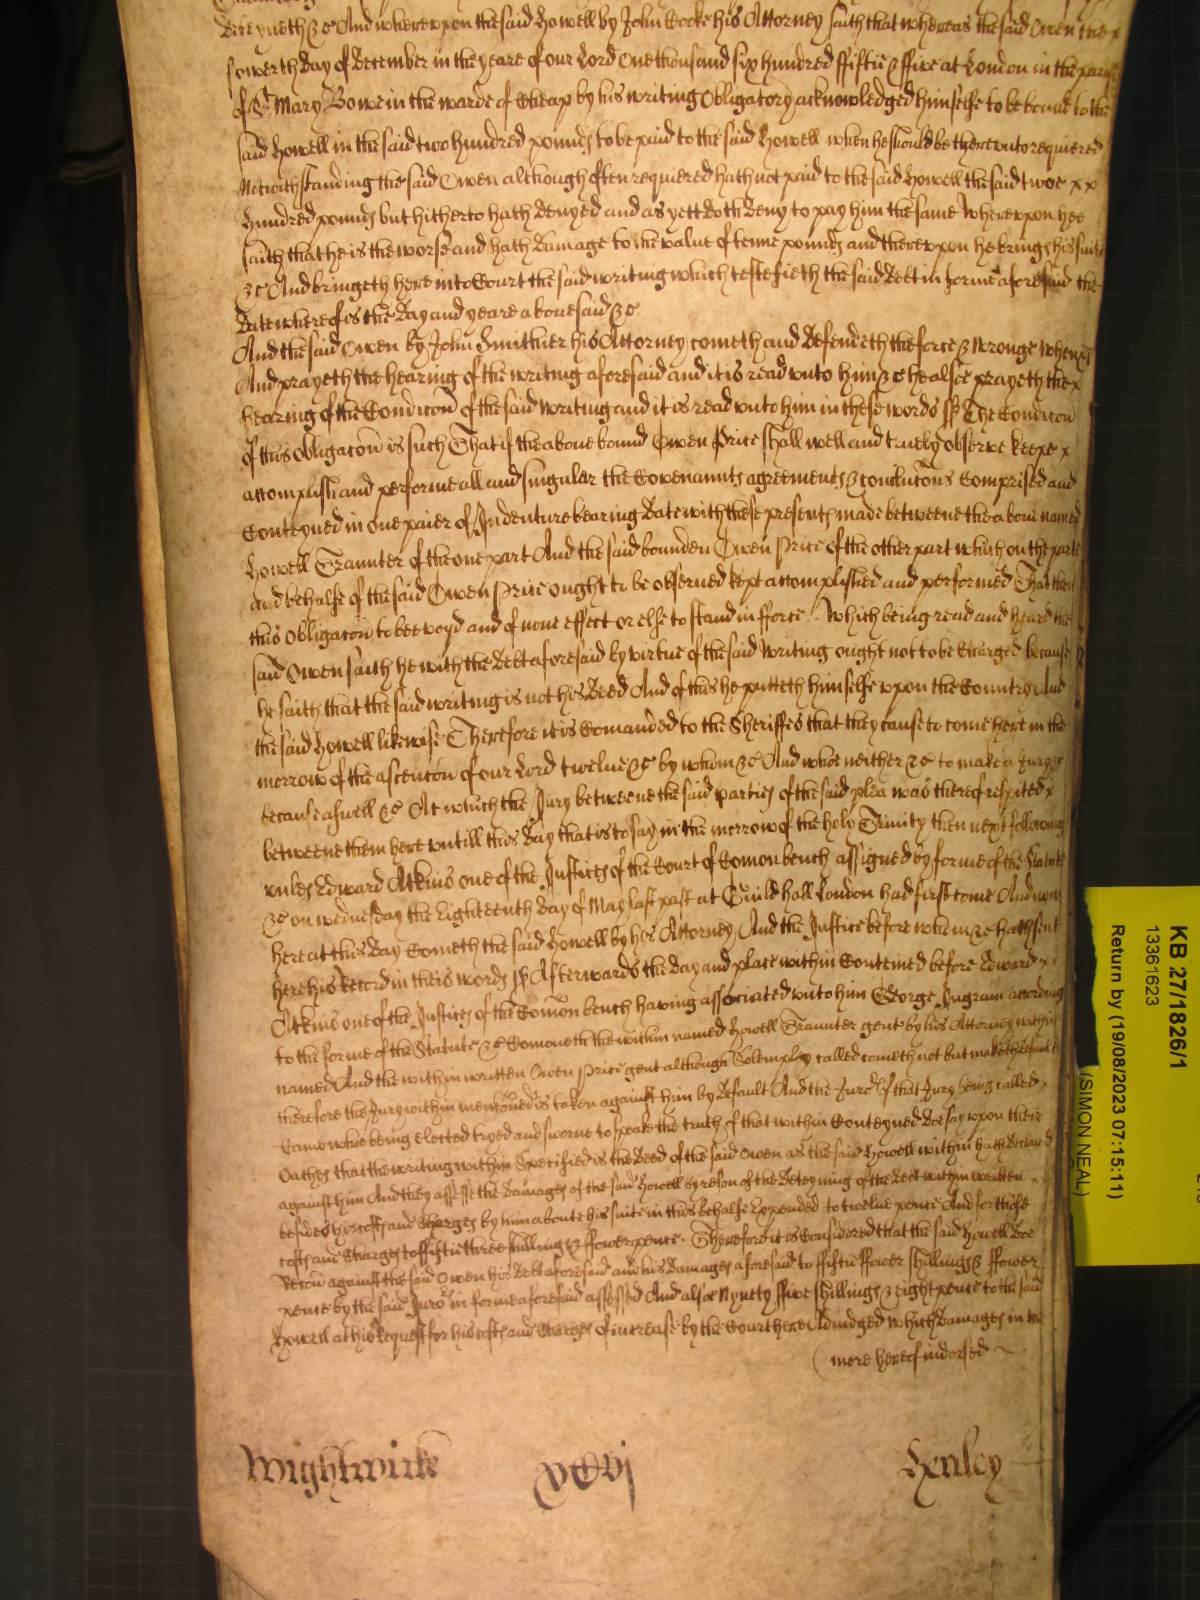 deteyneth &c And wherevpon the said Howell by John Cooke his Attorney saith that whereas the said Owen the x
fowerth day of December in the yeare of our Lord One thousand six hundred ffiftie & ffive at London in the parish
of St Mary Bowe in the warde of Cheap by his writing Obligatory acknowledged himselfe to be bound to the
said Howell in the said two hundred pounds to be paid to the said Howell when he should be therevnto requiered
Notwithstanding the said Owen although often requiered hath not paid to the said Howell the said twoe x x
hundred pounds but hitherto hath denyed and as yett doth deny to pay him the same Wherevpon hee
saith that he is the worse and hath damage to the value of tenne pounds and therevpon he brings his suite
&c And bringeth here into Court the said writing which testefieth the said debt in forme aforesaid the
date whereof is the day and yeare abouesaid &c
And the said Owen by John Smithier his Attorney cometh and defendeth the force & wronge when &c
And prayeth the hearing of the writing aforesaid and it is read vnto him &c he alsoe prayeth the x
hearing of the Condicon of the said writing and it is read vnto him in these words ss The Condicon
of this obligacon is such That if the aboue bound Owen Price shall well and truely observe keepe x
accomplish and performe all and singular the Covenannts agreements & conclucons Comprised and
Conteyned in one paier of Indenture bearing date with these presents made betweene the aboue named
Howell Traunter of the one part And the said bounden Owen Price of the other part which on the parte
and behalfe of the said Owen Price ought to be observed kept accomplished and performed That then
this obligacon to bee voyd and of none effect or else to stand in fforce. Which being read and heard the
said Owen saith he with the debt aforesaid by virtue of the said writing ought not to be Charged because
he saith that the said writing is not his deed And of this he putteth himselfe vpon the Country And
the said Howell likewise Therefore it is Comanded to the Sheriffes that they cause to come here in the
morrow of the ascencon of our Lord twelue &c by whom &c And whoe neither &c to make a Jury &c
because aswell &c At which the Jury betweene the said parties of the said plea was thereof respited x
betweene them here vntill this day that is to say in the morrow of the holy Trinity then next following
vnles Edward Atkins one of the Justices of the Court of Comon bench assigned by forme of the Statute
&c on wednesday the Eighteenth day of May last past at Guild hall London had first come And now
here at this day Cometh the said Howell by his Attorney And the Justice before whom &c hath sent
here his Record in theis words ss Afterwards the day and place within Conteined before Edward x
Atkins one of the Justices of the Comon bench having associated vnto him George Ingram according
to the forme of the Statute &c Cometh the within named Howell Traunter gent by his Attorney within
named And the within written Owen Price gent although Solemply called cometh not but maketh default
therefore the Jury within menconed is taken against him by default And the Juro's of that Jury being called x
Came whoe being elected tryed and sworne to speake the truth of that within Conteyned doe say vpon their
Oathes that the writing within Specified is the deed of the said Owen as the said Howell within hath declared
against him And they assesse the damages of the said Howell by reson of the deteyning of the debt within written
besides his costs and Charges by him aboute his suite in this behalfe Expended to twelue pence And for those
costs and Charges to ffiftie three shillings & ffower pence. Therefore it is Considered that the said Howell doe
Recou against the said Owen his debt aforesaid and his damages aforesaid to ffiftie ffower shillings & ffower
pence by the said Juro's in forme aforesaid assessed And alsoe Nynety ffive shillings & eight pence to the said
Howell at his Request for his costs and Charges of increase by the Court here Adiudged which damages in the
more hereof indorsed
Wightwicke
Henley
KB 27/1826/1
13361623
Return by (19/08/2023 07:15:11)
(SIMON NEAL)